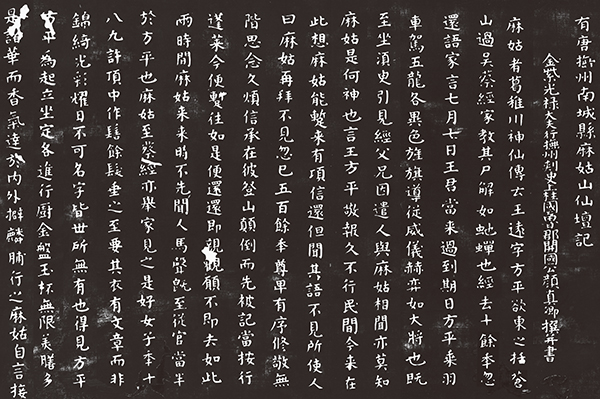 有唐撫州南城縣麻姑山仙壇記
金紫光祿大夫行撫州刺史上柱國魯郡開國公顏真卿撰并書
麻姑者葛稚川神仙傳云王遠字方平欲東之括蒼
山過吳蔡經家教其尸解如虵蟬也經去十餘年忽
還語家言七月七日王君當來過到期日方平乘羽
車駕五龍各異色旌旗導從威儀赫弈如大將也既
至坐須臾引見經父兄因遣人與麻姑相聞亦莫知
麻姑是何神也言王方平敬報久不行民間今來在
此想麻姑能蹔來有頃信還但聞其語不見所使人
曰麻姑再拜不見忽已五百餘年尊卑有序修敬無
階思念久煩信承在彼登山顛倒而先被記當按行
蓬萊今便蹔往如是便還還即親觀願不即去如此
兩時間麻姑來來時不先聞人馬聲既至從官當半
於方平也麻姑至蔡經亦舉家見之是好女子年十
八九許頂中作髻餘髮垂之至要其衣有文章而非
錦綺光彩耀日不可名字皆世所無有也得見方平
為起立坐定各進行廚金盤玉杯無限美膳多
是諸華而香氣達於內外擗麟脯行之麻姑自言接